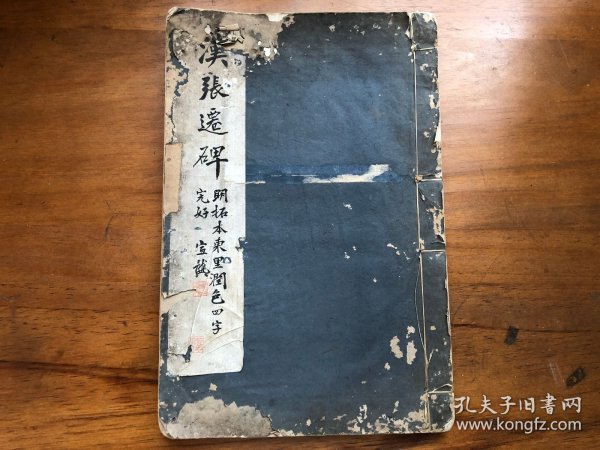 漢張遷碑
明拓本東里潤色四字
完好
宣
孔夫子旧书网
www.kongfz.com